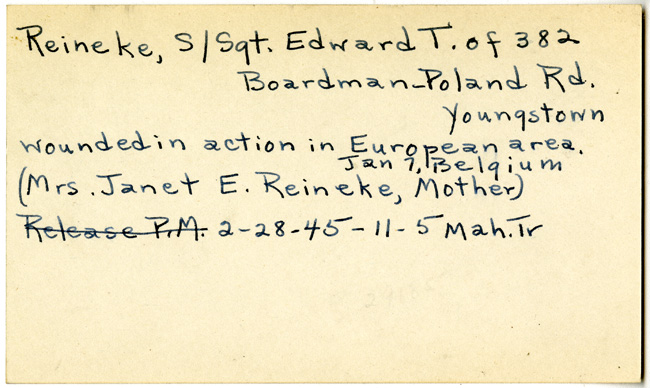 Reineke, S/Sgt. Edward T. of 382
Boardman-Poland Rd.
Youngstown
wounded in action in European area.
Jan 7, Belgium
(Mrs. Janet E. Reineke, Mother)
Release P.M. 2-28-45-11-5 Mah. Tr